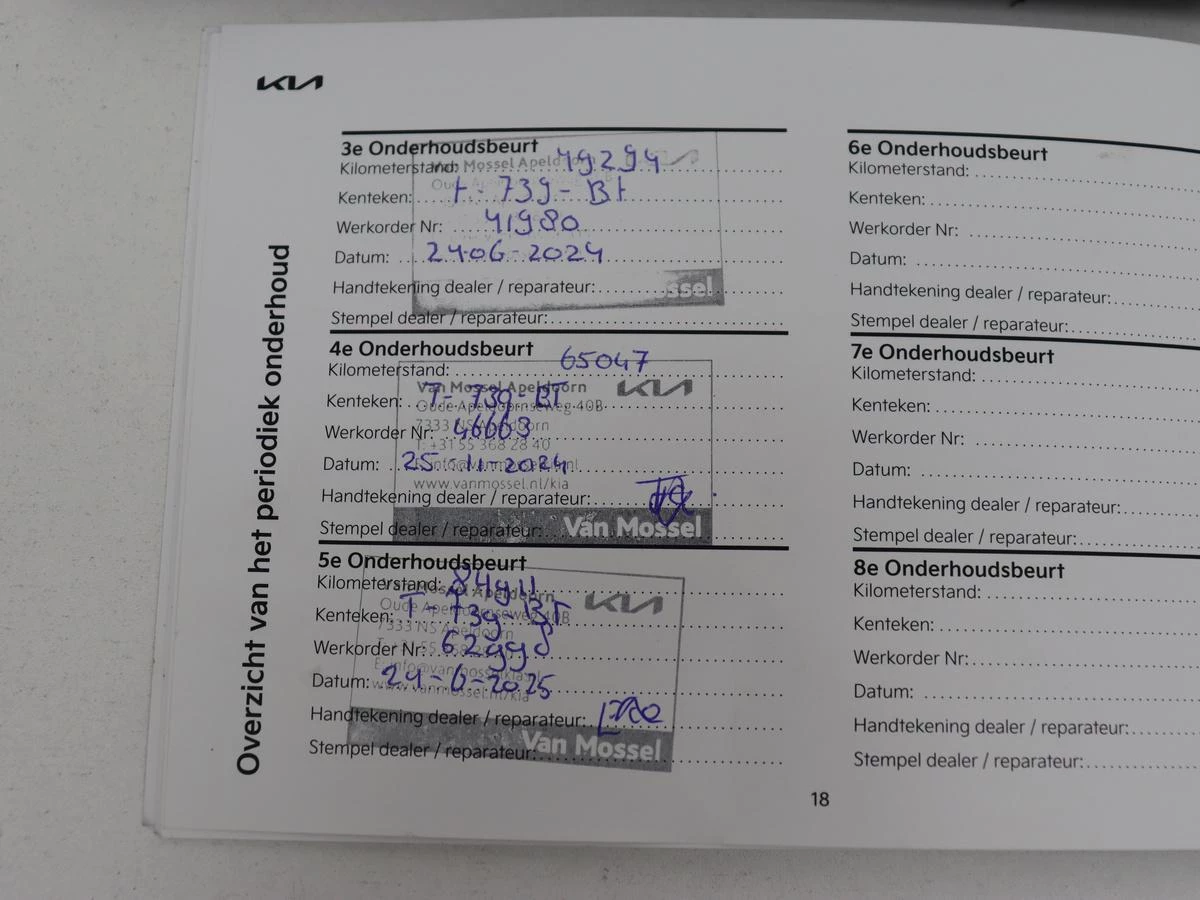 KIA
Overzicht van het periodiek onderhoud
3e Onderhoudsbeurt
Kilometerstand: 49294
Kenteken: T-739-BT
Werkorder Nr: 41980
Datum: 24-06-2024
Handtekening dealer / reparateur:
Stempel dealer / reparateur:
Van Mossel Apeldoorn
ssel
4e Onderhoudsbeurt
Kilometerstand: 65047
Kenteken: T-739-BT
Werkorder Nr: 46663
Datum: 25-11-2024
Handtekening dealer / reparateur:
Stempel dealer / reparateur:
Van Mossel Apeldoorn
KIA
Oude Apeldoornseweg 40B
7333 NS Apeldoorn
T: +31 55 368 28 40
E: info@vanmossel.nl
www.vanmossel.nl/kia
Van Mossel
5e Onderhoudsbeurt
Kilometerstand: 84911
Kenteken: T-739-BT
Werkorder Nr: 62998
Datum: 24-6-2025
Handtekening dealer / reparateur:
Stempel dealer / reparateur:
Van Mossel Apeldoorn
KIA
Oude Apeldoornseweg 40B
7333 NS Apeldoorn
www.vanmossel.nl/kia
Van Mossel
6e Onderhoudsbeurt
Kilometerstand:
Kenteken:
Werkorder Nr:
Datum:
Handtekening dealer / reparateur:
Stempel dealer / reparateur:
7e Onderhoudsbeurt
Kilometerstand:
Kenteken:
Werkorder Nr:
Datum:
Handtekening dealer / reparateur:
Stempel dealer / reparateur:
8e Onderhoudsbeurt
Kilometerstand:
Kenteken:
Werkorder Nr:
Datum:
Handtekening dealer / reparateur:
Stempel dealer / reparateur:
18